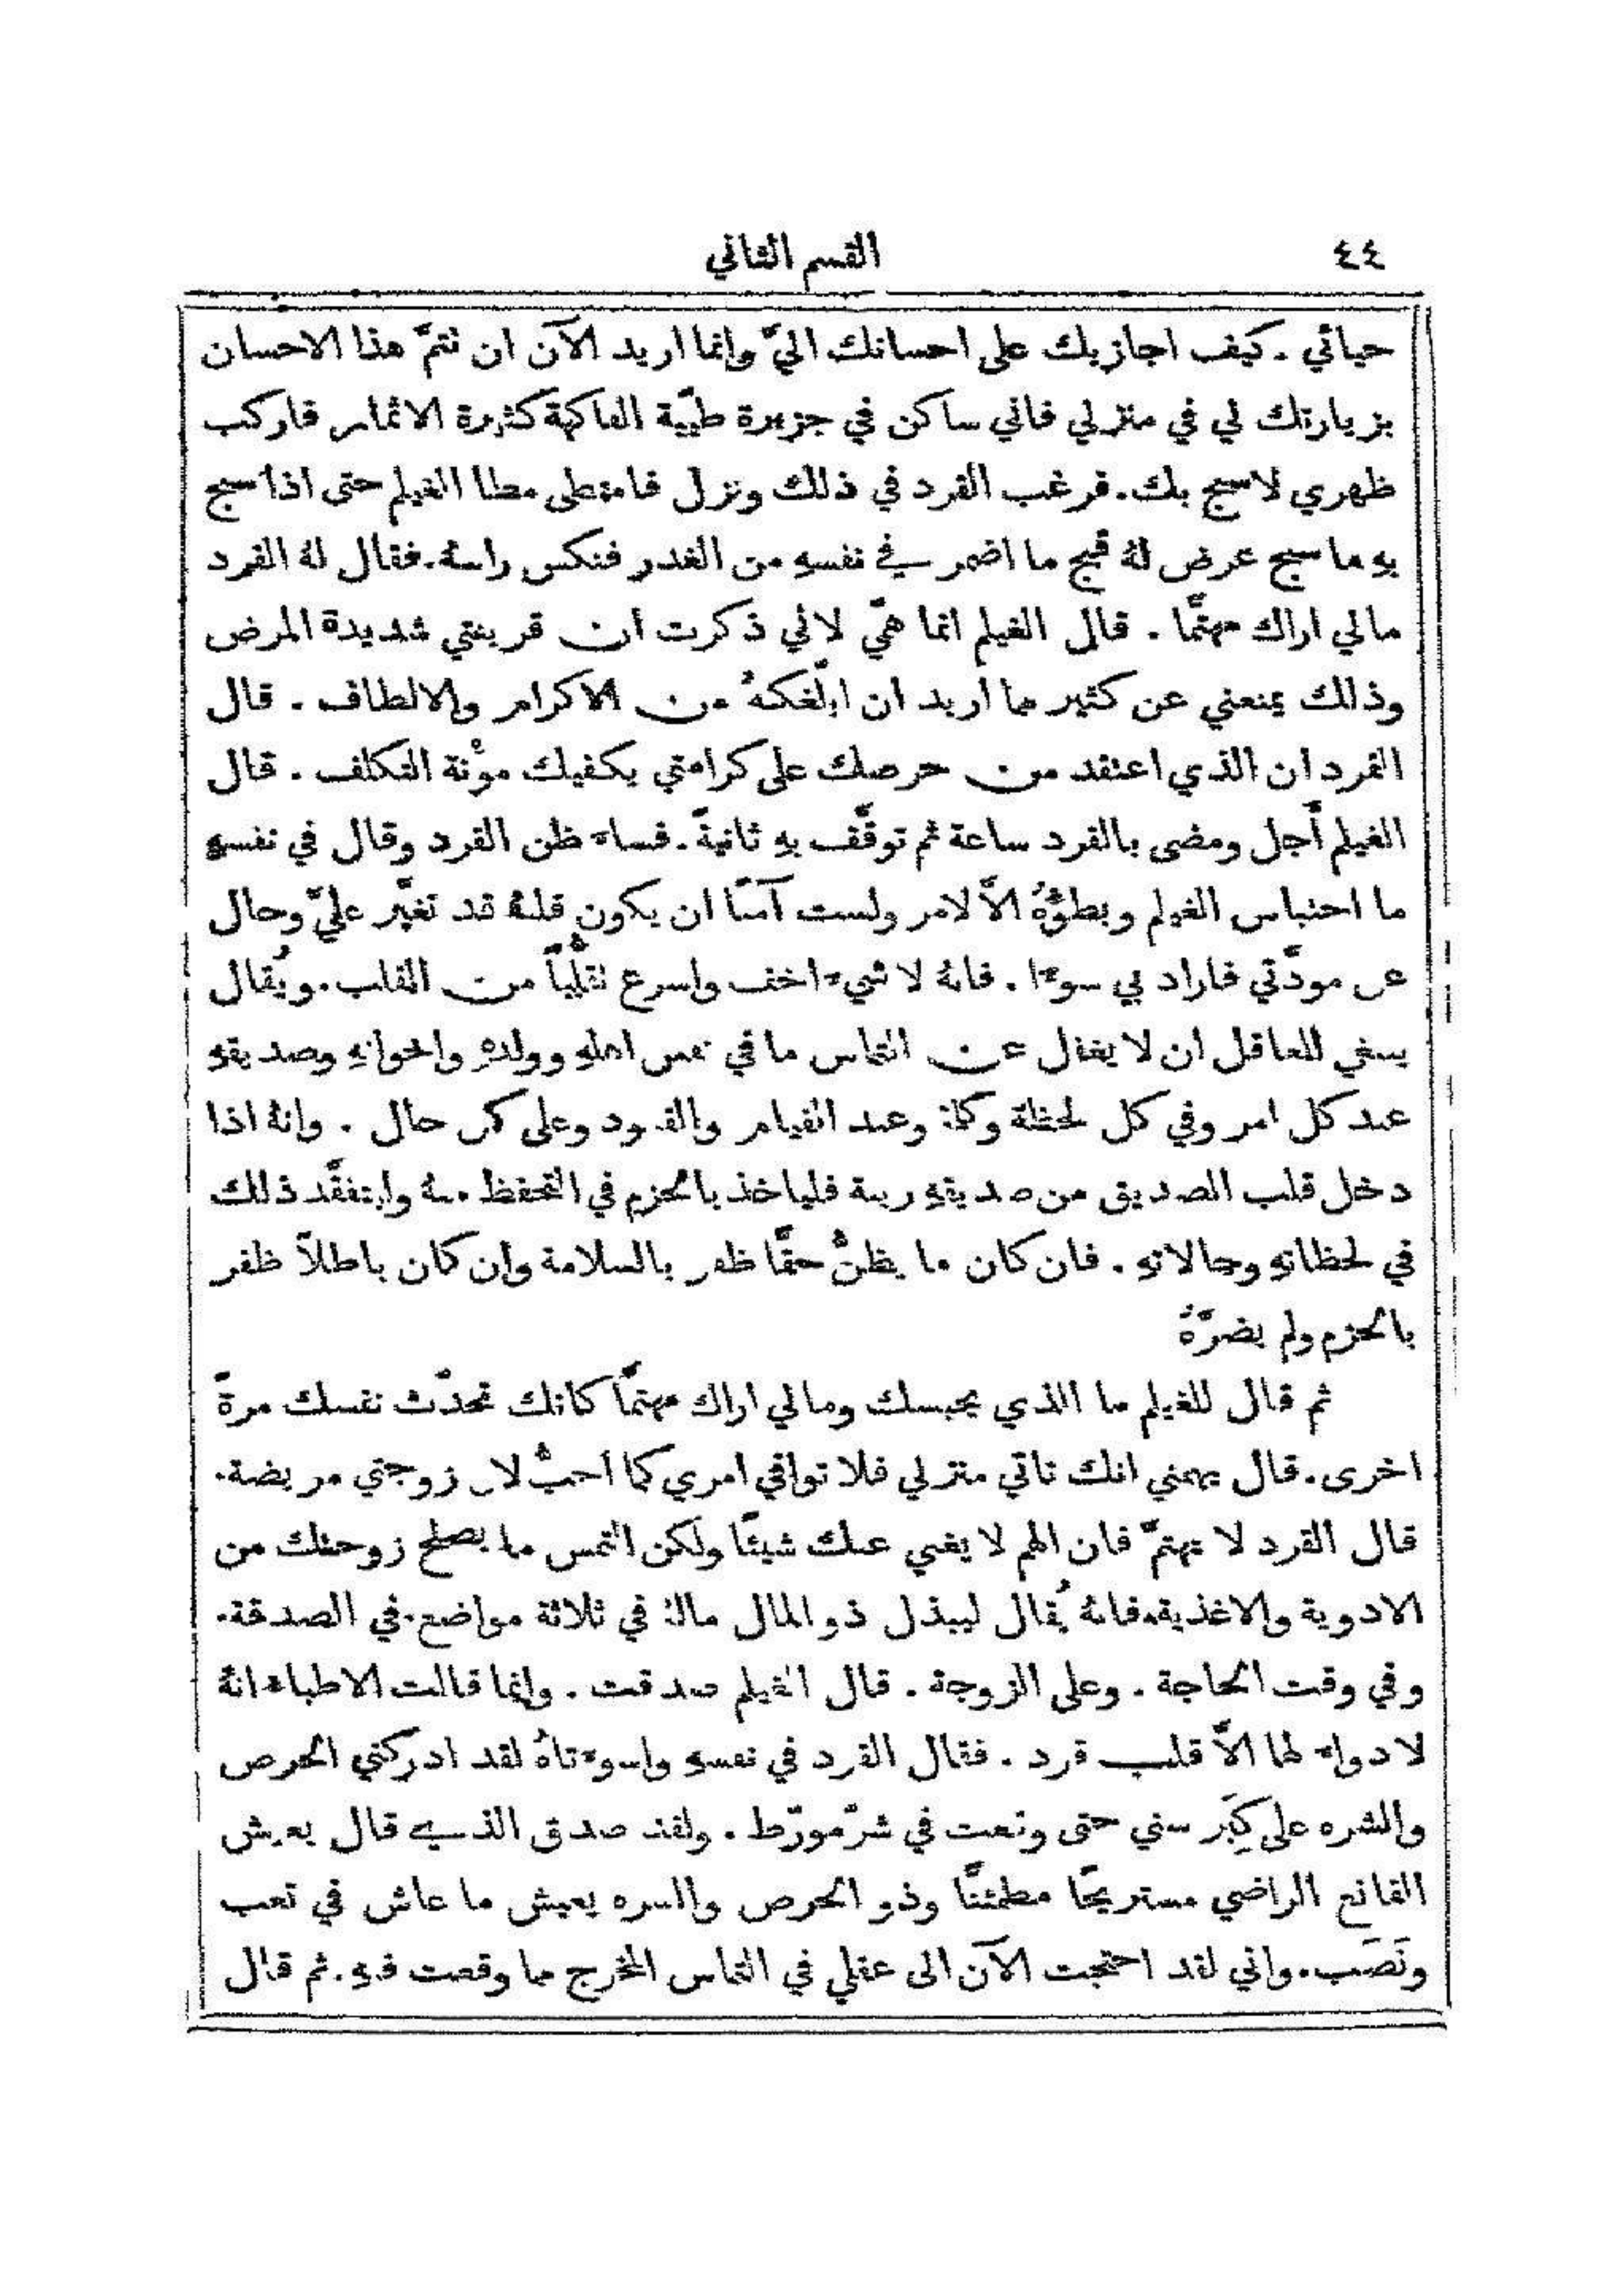 ٤٤
القسم الثاني
حياتي . كيف اجازيك على احسانك اليَّ وانما اريد الآن ان تتمَّ هذا الاحسان
بزيارتك لي في منزلي فاني ساكن في جزيرة طيّبة الفاكهة كثيرة الاثمار فاركب
ظهري لاسبح بك. فرغب القرد في ذلك ونزل فامتطى مطا الغيلم حتى اذا سبح
بهِ ما سبح عرض لهُ قبح ما اضمر في نفسهِ من الغدر فنكس راسهُ. فقال لهُ القرد
مالي اراك مهتمًّا . قال الغيلم انما همّي لاني ذكرت ان قرينتي شديدة المرض
وذلك يمنعني عن كثير مما اريد ان ابلّغكهُ من الاكرام والالطاف . قال
القرد ان الذي اعتقد من حرصك على كرامتي يكفيك موْنة التكلف . قال
الغيلم أَجل ومضى بالقرد ساعة ثم توقَّف بهِ ثانيةً . فساء ظن القرد وقال في نفسهِ
ما احتباس الغيلم وبطؤُهُ الَّا لامر ولست آمنًا ان يكون قلبهُ قد تغيَّر عليَّ وحال
عن مودَّتي فاراد بي سوءًا . فانهُ لا شيء اخف واسرع تقلُّبًا من القلب. ويُقال
ينبغي للعاقل ان لا يغفل عن التماس ما في نفس اهلهِ وولدهِ واخوانهِ وصديقهِ
عند كل امر وفي كل لحظة وكلمة وعند القيام والقعود وعلى كل حال . وانهُ اذا
دخل قلب الصديق من صديقهِ ريبة فلياخذ بالحزم في التحفظ منهُ وليتفقَّد ذلك
في لحظاتهِ وحالاتهِ . فان كان ما يظنُّ حقًّا ظفر بالسلامة وان كان باطلاً ظفر
بالحزم ولم يضرَّهُ
ثم قال للغيلم ما الذي يحبسك ومالي اراك مهتمًّا كانك تحدّث نفسك مرةً
اخرى. قال يهمني انك تاتي منزلي فلا توافي امري كما احبُّ لان زوجتي مريضة.
قال القرد لا تهتمَّ فان الهم لا يغني عنك شيئًا ولكن التمس ما يصلح زوجتك من
الادوية والاغذية. فانهُ يُقال ليبذل ذو المال مالهُ في ثلاثة مواضع. في الصدقة.
وفي وقت الحاجة . وعلى الزوجة . قال الغيلم صدقت . وانما قالت الاطباء انهُ
لا دواء لها الَّا قلب قرد . فقال القرد في نفسهِ واسوءتاهُ لقد ادركني الحرص
والشره على كِبَر سني حتى وقعت في شرّ مورّط . ولقد صدق الذي قال يعيش
القانع الراضي مستريحًا مطمئنًّا وذو الحرص والشره يعيش ما عاش في تعب
ونَصَب. واني لقد احتجت الآن الى عقلي في التماس المخرج مما وقعت فيهِ. ثم قال